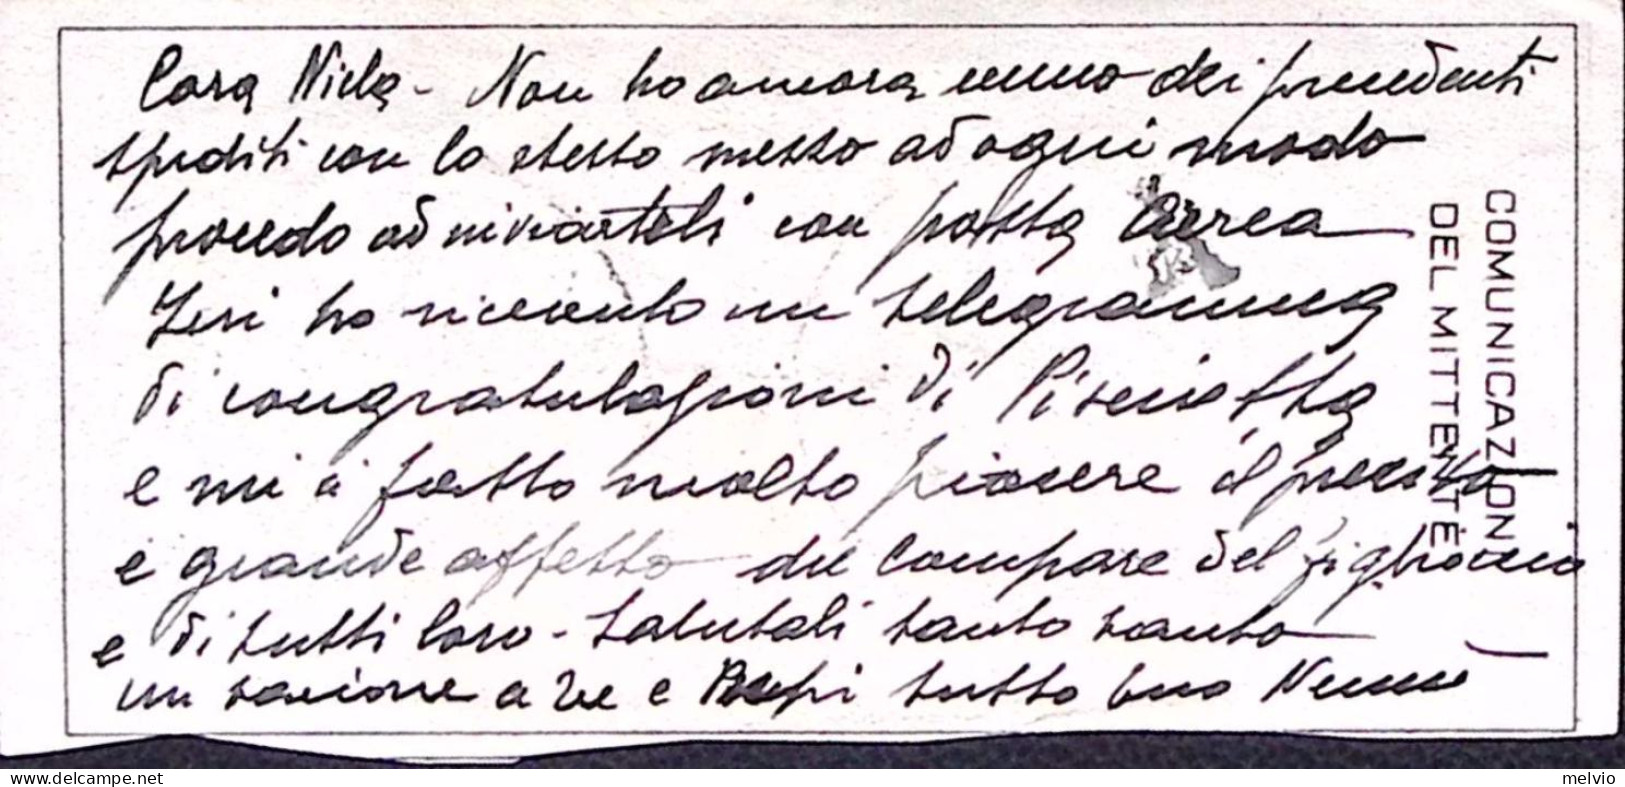 Cara Nicla - Non ho ancora uno dei precedenti
spediti con lo stesso mezzo ad ogni modo
procedo ad inviarteli con posta aerea
Ieri ho ricevuto un telegramma
di congratulazioni di
e mi à fatto molto piacere il
e grande affetto del Compare del figlioccio
e di tutti loro - salutali tanto tanto
un bacione a te e Pupi tutto tuo
COMUNICAZIONI
DEL MITTENTE
melvio